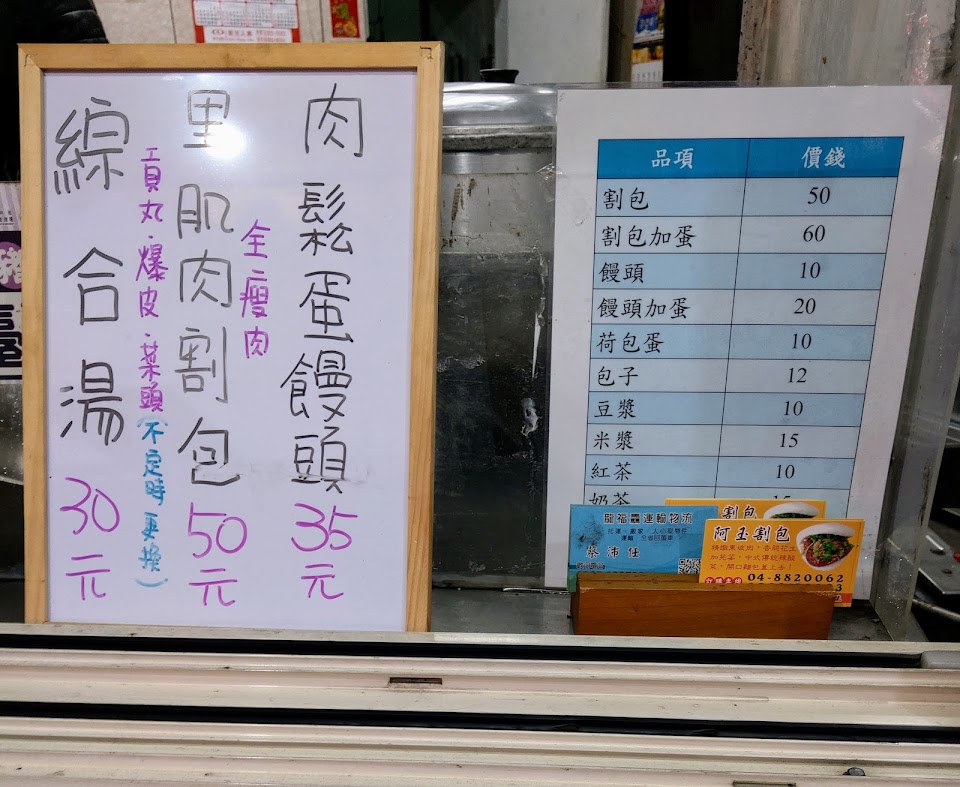 肉鬆蛋饅頭
35元
全瘦肉
里肌肉割包
50元
貢丸、爆皮、菜頭(不定時更換)
綜合湯
30元
品項 價錢
割包 50
割包加蛋 60
饅頭 10
饅頭加蛋 20
荷包蛋 10
包子 12
豆漿 10
米漿 15
紅茶 10
奶茶 15
龍福 運輸物流
蔡沛
割包
阿玉割包
04-8820062